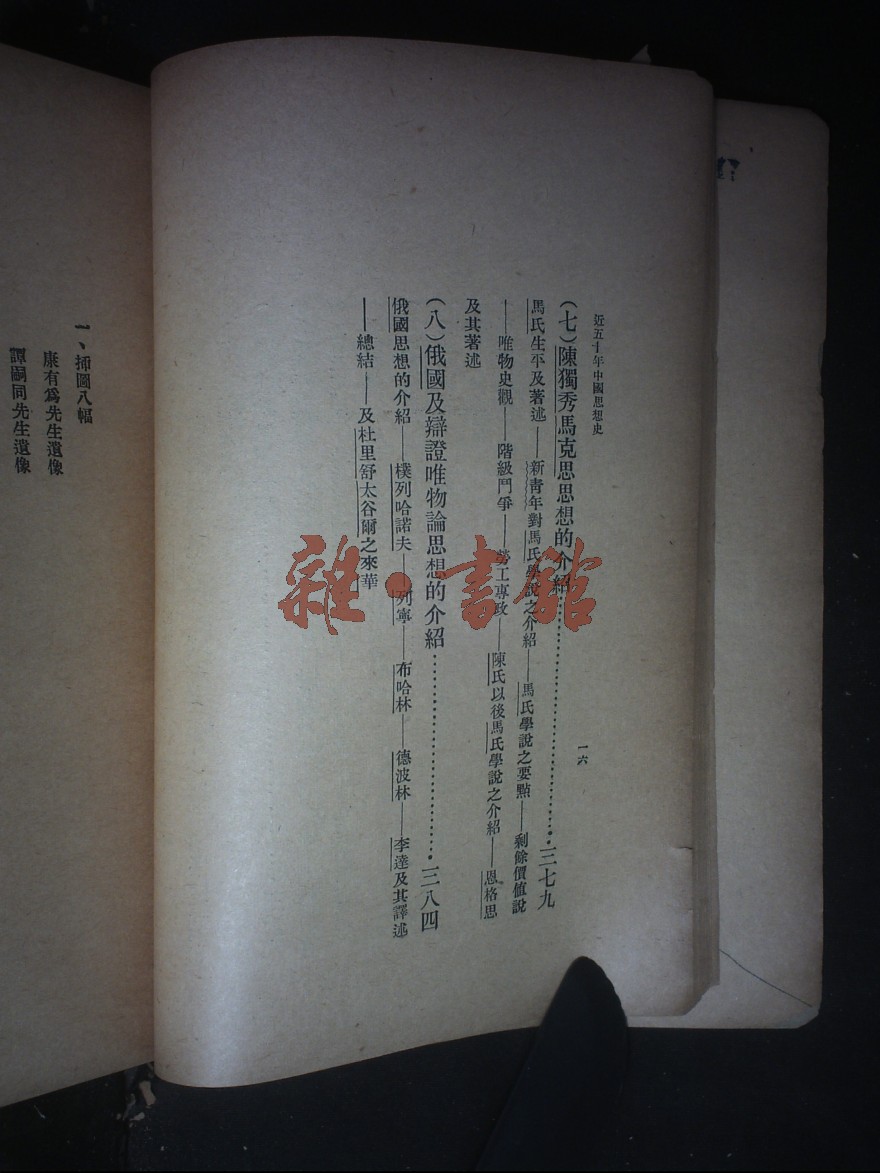 近五十年中國思想史
一六
(七)陳獨秀馬克思思想的介紹……三七九
馬氏生平及著述——新青年對馬氏學說之介紹——馬氏學說之要點——剩餘價值說
——唯物史觀——階級鬥爭——勞工專政——陳氏以後馬氏學說之介紹——恩格思
及其著述
(八)俄國及辯證唯物論思想的介紹……三八四
俄國思想的介紹——樸列哈諾夫——列寧——布哈林——德波林——李達及其譯述
——總結——及杜里舒太谷爾之來華
一、揷圖八幅
康有爲先生遺像
譚嗣同先生遺像
雜·書館